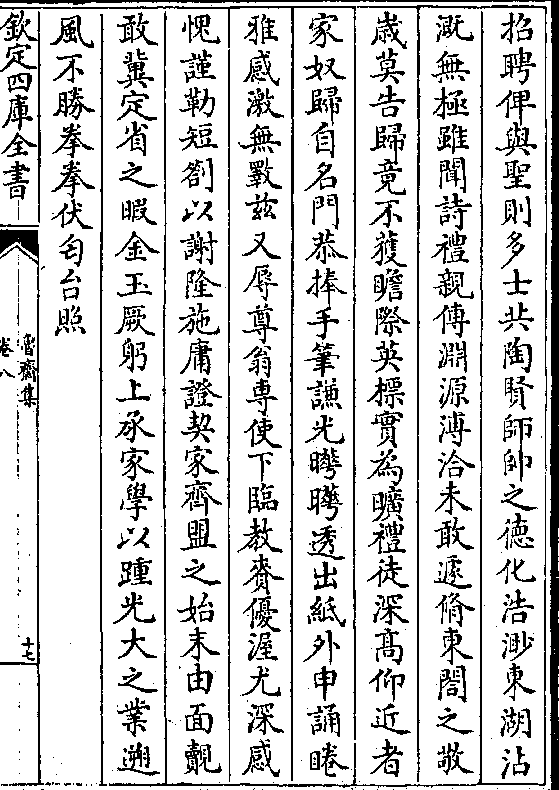 招聘俾與聖則多士共陶賢師帥之徳化浩渺東湖沾
溉無極雖聞詩禮親傳淵源溥洽未敢遽脩東閤之敬
歳莫告歸竟不獲瞻際英標實為曠禮徒深髙仰近者
家奴歸自名門恭捧手筆謙光曄曄透出紙外申誦睠
雅感激無斁兹又辱尊翁専使下臨教賚優渥尤深感
愧謹勒短劄以謝隆施庸證契家齊盟之始末由面覿
敢冀定省之暇金玉厥躬上承家學以踵光大之業遡
風不勝拳拳伏匄台照
欽定四庫全書
魯齋集
卷八
十七